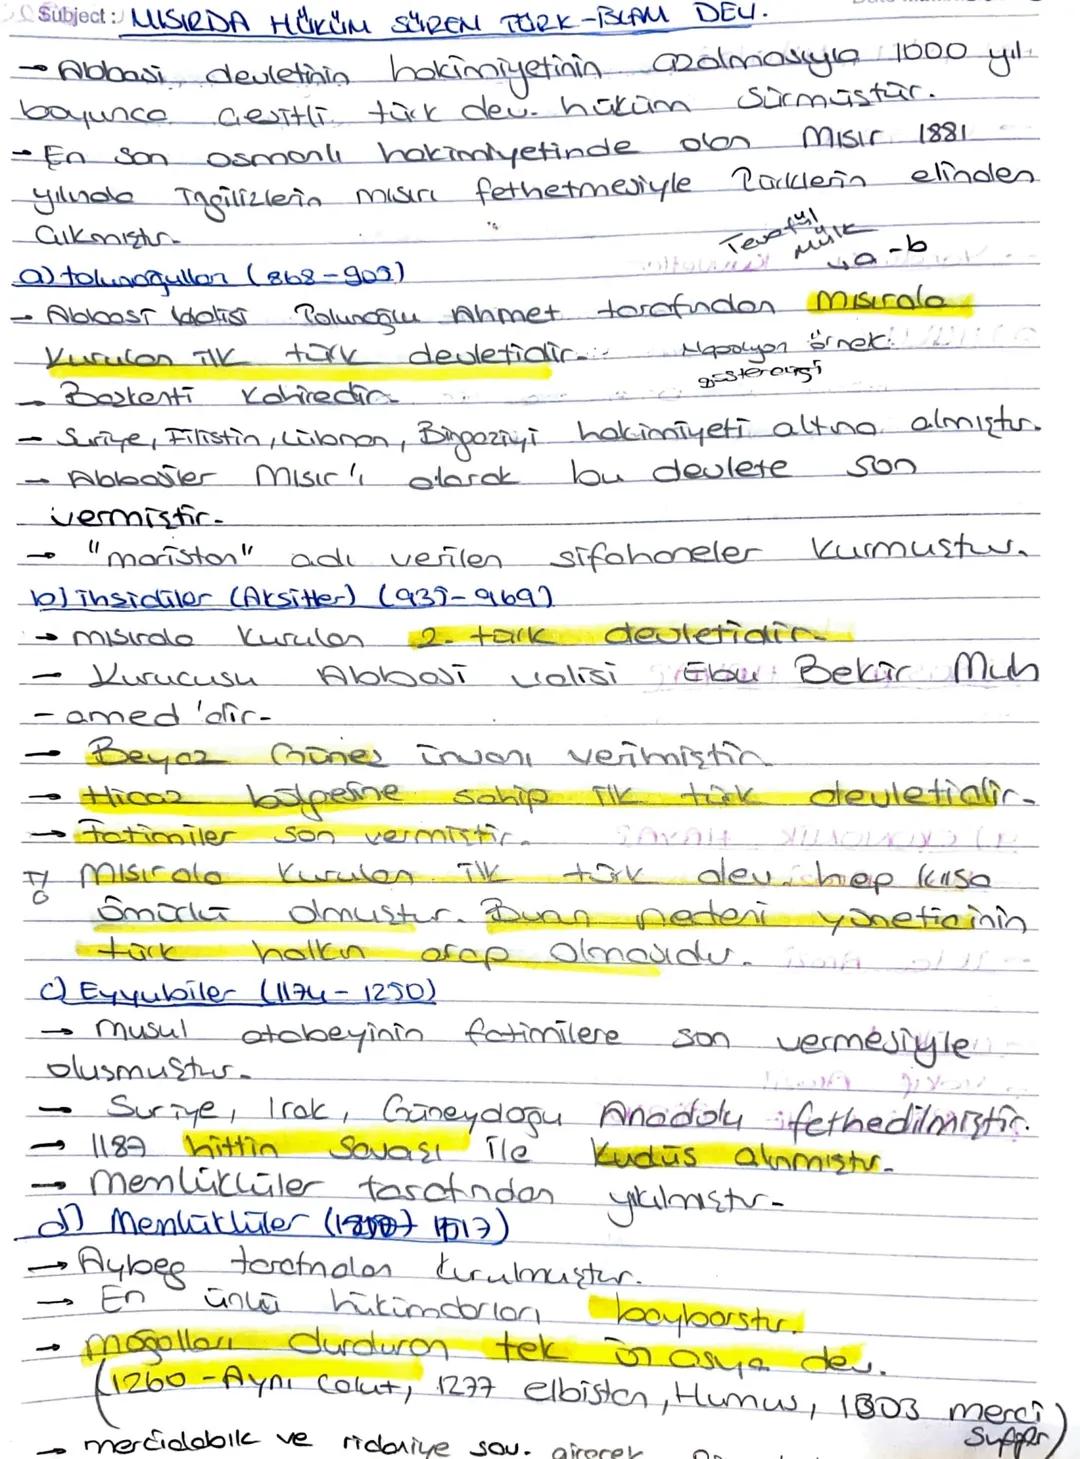 Subject: MISIRDA HÜKÜM SÜREN TÜRK-İSLAM DEV.
→ Abbasi devletinin hakimiyetinin azalmasıyla 1000 yıl
boyunca çeşitli türk dev. hüküm sürmüştür.
- En son osmanlı hakimiyetinde olan Mısır 1881
yılında İngilizlerin mısırı fethetmesiyle Türklerin elinden
çıkmıştır.
Tevaful Mülk
↳ a-b
a) tolunoğulları (868-905)
- Abbasi valisi Tolunoğlu Ahmet tarafından Mısırda
kurulan ilk türk devletidir.
Napolyon örnek
göstermişti
- Başkenti Kahiredir.
- Suriye, Filistin, Lübnan, Bingaziyi hakimiyeti altına almıştır.
- Abbasiler Mısır'ı alarak bu devlete son
vermiştir.
→ "maristan" adı verilen şifahaneler kurmuştur.
b) ihşidiler (Akşitler) (935-969)
→ mısırda kurulan 2. türk devletidir.
- Kurucusu Abbasi valisi Ebu Bekir Muh
-amed'dir-
→ Beyaz Güneş ünvanı verilmiştir.
→ Hicaz bölgesine sahip ilk türk devletidir.
→ Fatimiler son vermiştir.
Mısırda kurulan ilk türk dev. hep kısa
ömürlü olmuştur. Bunn nedeni yöneticinin
türk halkın arap olmasıdır.
c) Eyyubiler (1174-1250)
→ musul atabeyinin fatimilere son vermesiyle
oluşmuştur.
- Suriye, Irak, Güneydoğu Anadolu fethedilmiştir.
→ 1187 hittin Savaşı ile Kudüs alınmıştır.
→ memlüklüler tarafından yıkılmıştır-
d) Memlüklüler (1250-1517)
→ Aybeg tarafından kurulmuştur.
→ En ünlü hükümdarları baybarstır.
→ moğolları durduran tek ön asya dev.
(1260-Ayni Calut, 1277 elbistan, Humus, 1303 merci
Suffer)
→ mercidabık ve ridaniye sav.